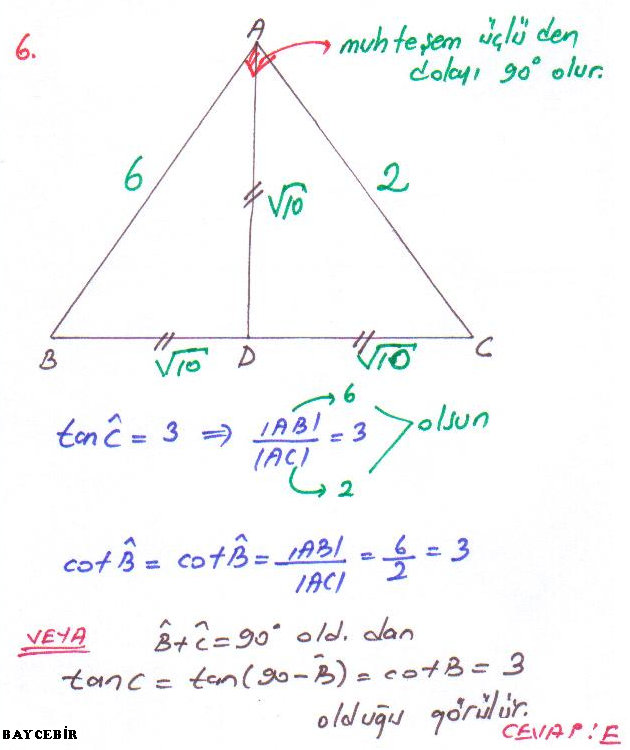 6.
A
muhteşem üçlüden
dolayı 90° olur.
6
2
√10
B
√10
D
√10
C
tan Ĉ = 3 ⇒ |AB| / |AC| = 3
6
2
olsun
cot B̂ = cot B̂ = |AB| / |AC| = 6/2 = 3
VEYA
B̂ + Ĉ = 90° old. dan
tan C = tan(90 - B̂) = cot B = 3
olduğu görülür.
CEVAP: E
BAYCEBİR